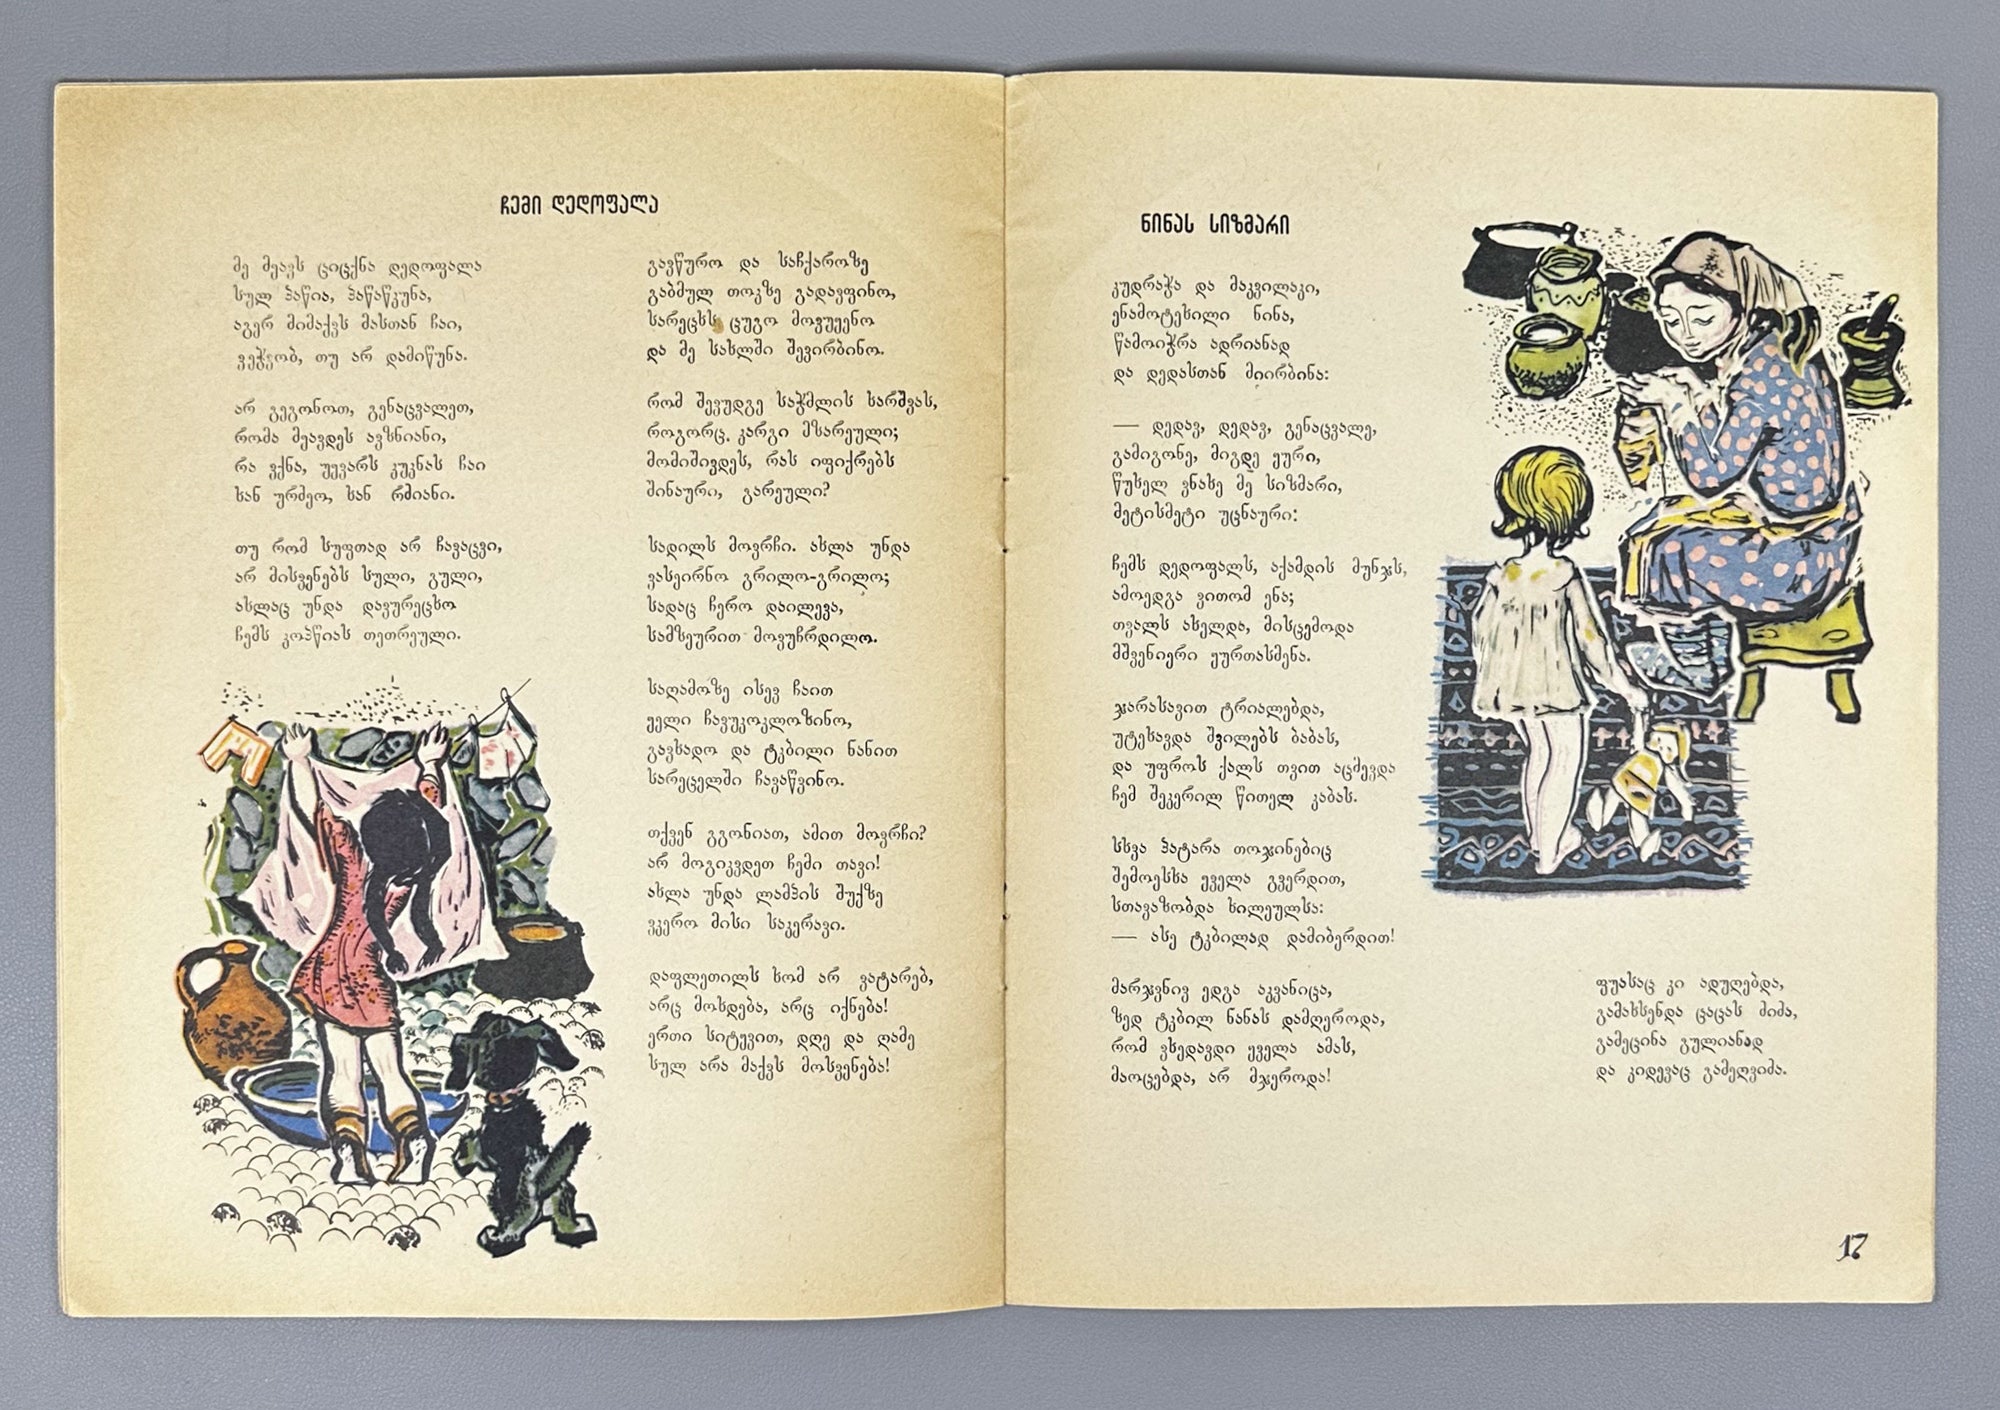 ჩემი დედოფალა
მე მყავს ციცქნა დედოფალა
სულ პაწია, პაწაწკუნა,
აგერ მიმაქვს მასთან ჩაი,
ვეჭვობ, თუ არ დამიწუნა.
არ გეგონოთ, გენაცვალეთ,
რომა მყავდეს ავზნიანი,
რა ვქნა, უყვარს კუკნას ჩაი
ხან ურძეო, ხან რძიანი.
თუ რომ სუფთად არ ჩავაცვი,
არ მისვენებს სული, გული,
ახლაც უნდა დავურეცხო
ჩემს კოპწიას თეთრეული.
გავწურო და საჩქაროზე
გაბმულ თოკზე გადავფინო,
სარეცხს ცუგო მოვუყენო
და მე სახლში შევირბინო.
რომ შევუდგე საჭმლის ხარშვას,
როგორც კარგი მზარეული;
მომიშივდეს, რას იფიქრებს
შინაური, გარეული?
სადილს მოვრჩი. ახლა უნდა
ვასეირნო გრილო-გრილო;
სადაც ჩერო დაილევა,
სამზეურით მოვუჩრდილო.
საღამოზე ისევ ჩაით
ყელი ჩავუკოკლოზინო,
გავხადო და ტკბილი ნანით
საწეცელში ჩავაწვინო.
თქვენ გგონიათ, ამით მოვრჩი?
არ მოგიკვდეთ ჩემი თავი!
ახლა უნდა ლამპის შუქზე
ვკერო მისი საკერავი.
დაფლეთილს ხომ არ ვატარებ,
არც მოხდება, არც იქნება!
ერთი სიტყვით, დღე და ღამე
სულ არა მაქვს მოსვენება!
ნინას სიზმარი
კუდრაჭა და მაკვილაკი,
ენამოტეხილი ნინა,
წამოიჭრა ადრიანად
და დედასთან მიირბინა:
— დედავ, დედავ, გენაცვალე,
გამიგონე, მიგდე ყური,
წუხელ ვნახე მე სიზმარი,
მეტისმეტი უცნაური:
ჩემს დედოფალს, აქამდის მუნჯს,
ამოედგა ვითომ ენა;
თვალს ახელდა, მისცემოდა
მშვენიერი ყურთასმენა.
ჯარასავით ტრიალებდა,
უტეხავდა შვილებს ბაბას,
და უფროს ქალს თვით აცმევდა
ჩემ შეკერილ წითელ კაბას.
სხვა პატარა თოჯინებიც
შემოესხა ყველა გვერდით,
სთავაზობდა ხილეულსა:
— ასე ტკბილად დამიბერდით!
მარჯვნივ ედგა აკვანიცა,
ზედ ტკბილ ნანას დამღეროდა,
რომ ვხედავდი ყველა ამას,
მაოცებდა, არ მჯეროდა!
ფუასაც კი ადუღებდა,
გამახსენდა ცაცას ძიძა,
გამეცინა გულიანად
და კიდევაც გამეღვიძა.
17